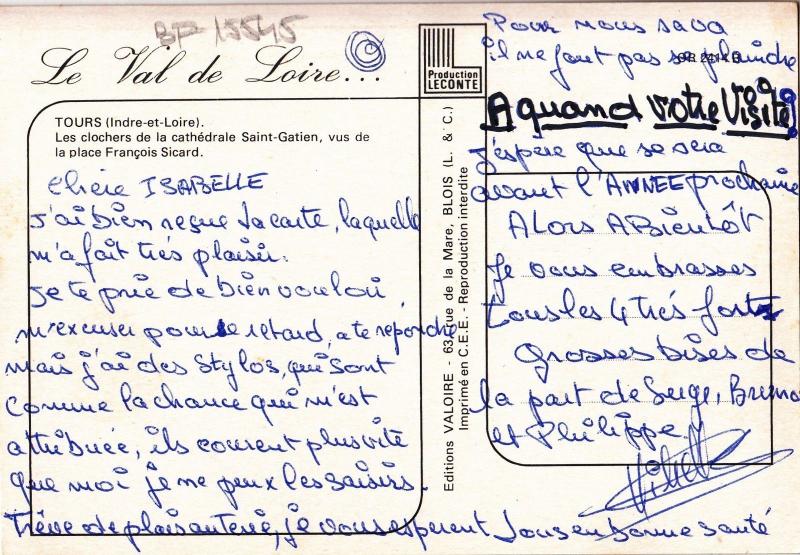 BP 15545
Le Val de Loire...
TOURS (Indre-et-Loire).
Les clochers de la cathédrale Saint-Gatien, vus de
la place François Sicard.
Production
LECONTE
Editions VALOIRE - 63, rue de la Mare, BLOIS (L. & C.)
Imprimé en C.E.E. - Reproduction interdite
Chère ISABELLE
J'ai bien reçue ta carte, laquelle
m'a fait trés plaisir.
Je te prie de bien vouloir
m'excuser pour le retard, a te repondre
mais j'ai des stylos, qui sont
comme la chance qui m'est
attribuée, ils courent plus vite
que moi je ne peux les saisirs.
Trêve de plaisanterie, je vous esperent tous en bonne santé
Pour nous sa va
il ne faut pas se plaindre
A quand votre Visite
J'espère que se sera
avant l'ANNEE prochaine
Alors A Bientôt
Je vous embrasses
tous les 4 trés forts
Grosses bises de
la part de Serge, Bruno
et Philippe.